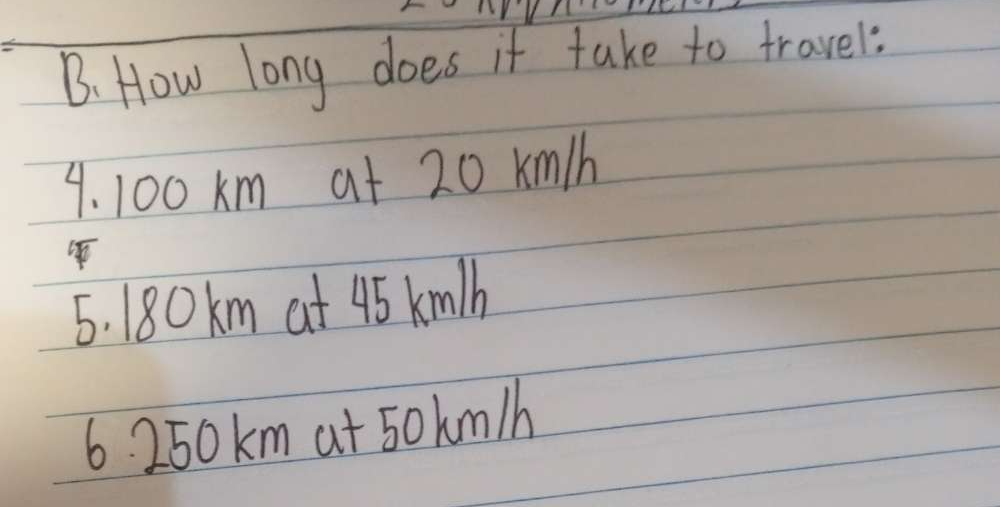 B. How long does it take to travel:
4. 100 km at 20 km/h
5. 180 km at 45 km/h
6. 250 km at 50 km/h